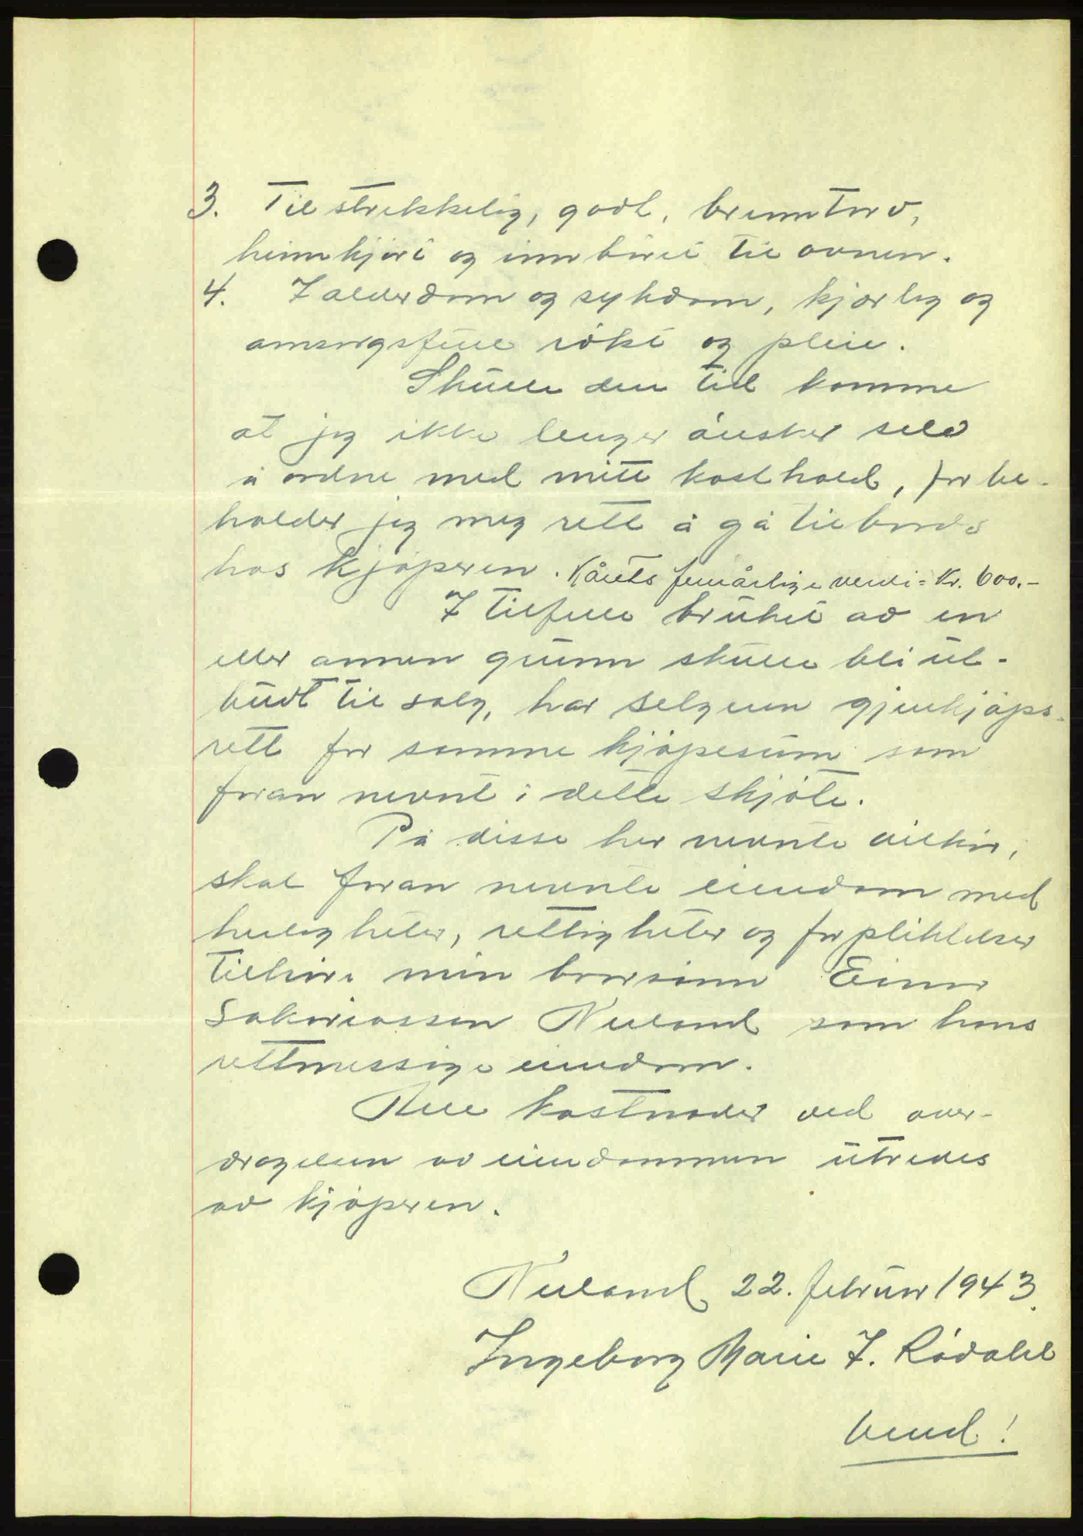 3. Tilstrekkelig, godt, brenntorv,
heimkjørt og innbåret til ovnen.
4. I alderdom og sykdom, kjærlig og
omsorgsfull røkt og pleie.
Skulle den tid komme
at jeg ikke lenger ønsker selv
å ordne med mitt kosthold, forbe-
holder jeg meg rett å gå til bords
hos kjøperen. Kårets femårlige verdi = Kr. 600.-
I tilfelle bruket av en
eller annen grunn skulle bli ut-
budt til salg, har selgeren gjenkjøps-
rett for samme kjøpesum som
foran nevnt i dette skjøte.
På disse her nevnte vilkår,
skal foran nevnte eiendom med
herligheter, rettigheter og forpliktelser
tilhøre min brorsønn Einar
Sakariassen Neuland som hans
rettmessige eiendom.
Alle kostnader ved over-
dragelsen av eiendommen utredes
av kjøperen.
Neuland 22. februar 1943.
Ingeborg Marie J. Rødahl
Vend!